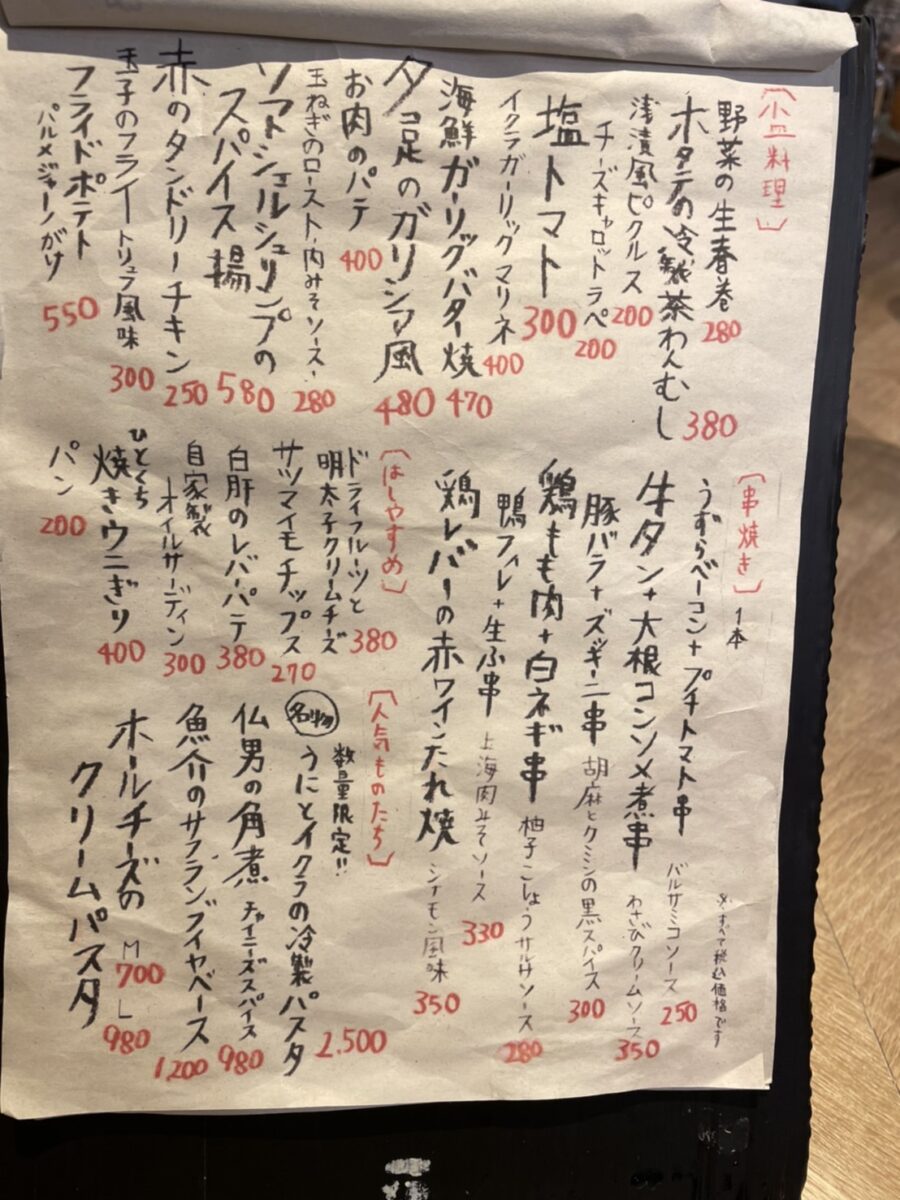 〔小皿料理〕
野菜の生春巻 280
ホタテの冷製茶わんむし 380
浅漬風ピクルス 200
チーズキャロットラペ 200
塩トマト 300
イクラガーリックマリネ 400
海鮮ガーリックバター焼 470
タコ足のガリシア風 480
お肉のパテ 400
玉ねぎのロースト,肉みそソース, 280
ソフトシェルシュリンプの
スパイス揚 580
赤のタンドリーチキン 250
玉子のフライ トリュフ風味 300
フライドポテト
パルメジャーノがけ 550
〔串焼き〕 1本
※すべて税込価格です
うずらベーコン+プチトマト串 バルサミコソース 250
牛タン+大根コンソメ煮串 わさびクリームソース 350
豚バラ+ズッキーニ串 胡麻とクミンの黒スパイス 300
鶏もも肉+白ネギ串 柚子こしょうサルサソース 280
鴨フィレ+生ふ串 上海肉みそソース 330
鶏レバーの赤ワインたれ焼 シナモン風味 350
〔はしやすめ〕
ドライフルーツと
明太子クリームチーズ 380
サツマイモチップス 270
白肝のレバーパテ 380
自家製
オイルサーディン 300
ひとくち
焼きウニぎり 400
パン 200
〔人気ものたち〕
数量限定!!
名物 うにとイクラの冷製パスタ 2,500
仏男の角煮 チャイニーズスパイス 980
魚介のサフランブイヤベース 1,200
ホールチーズの M 700 L 980
クリームパスタ